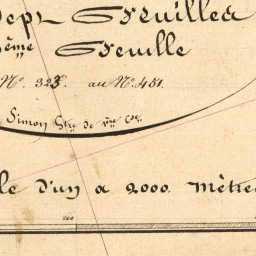 Sept Feuilles
ème Feuille
N°. 323. au N°. 451.
Simon Gtre de 1re Cse
le d'un a 2000 Mètres